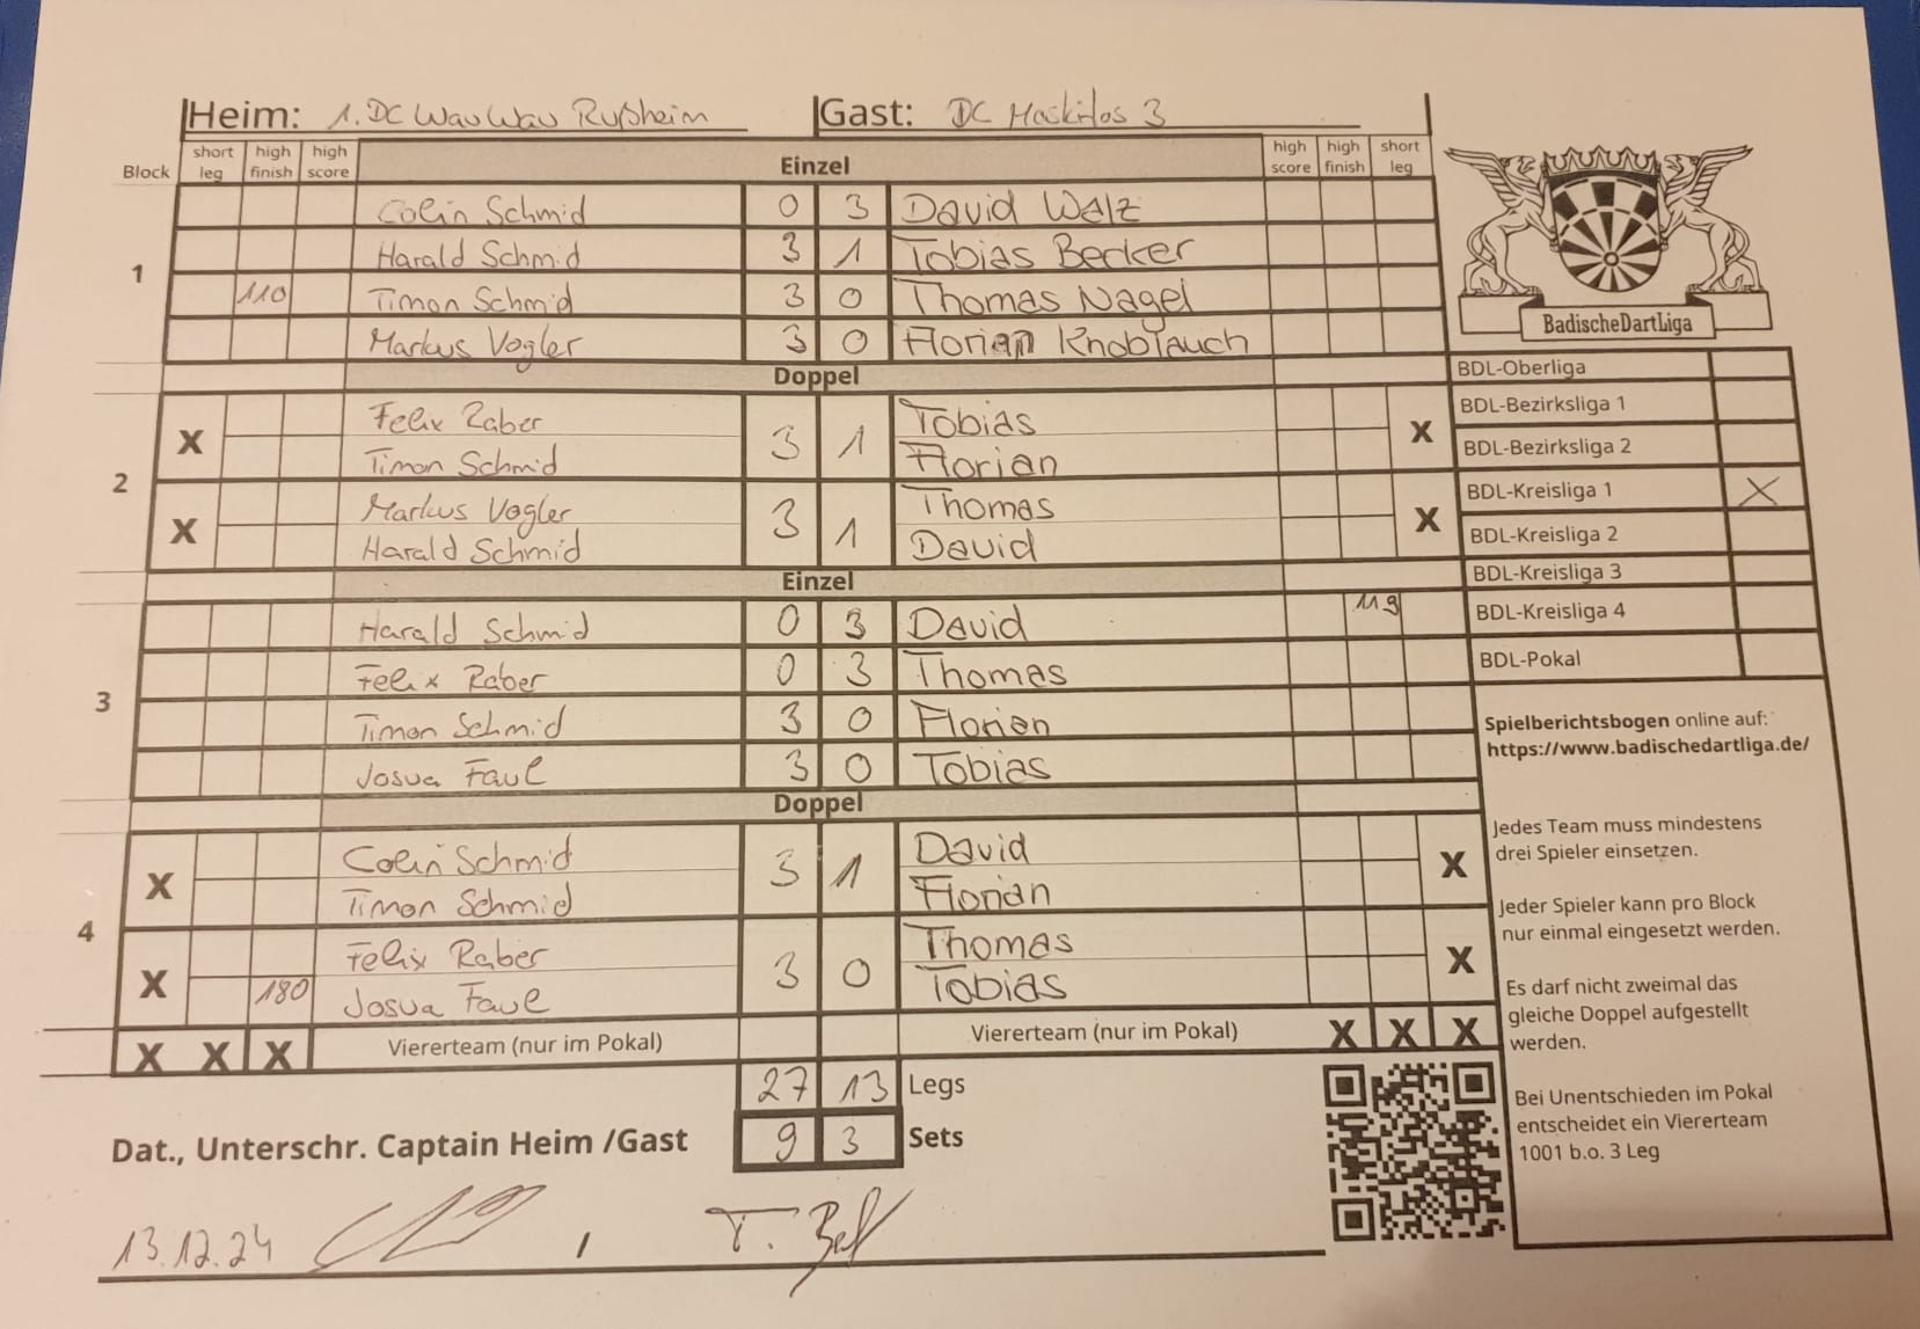 Heim: 1. DC WauWau Rußheim Gast: DC Moskitos 3
Block short leg high finish high score Einzel high score high finish short leg
1
Colin Schmid 0 3 David Walz
Harald Schmid 3 1 Tobias Becker
110 Timon Schmid 3 0 Thomas Nagel
Markus Vogler 3 0 Florian Knoblauch
Doppel
2
X Felix Raber 3 1 Tobias X
Timon Schmid Florian
X Markus Vogler 3 1 Thomas X
Harald Schmid David
Einzel
3
Harald Schmid 0 3 David 119
Felix Raber 0 3 Thomas
Timon Schmid 3 0 Florian
Josua Faul 3 0 Tobias
Doppel
4
X Colin Schmid 3 1 David X
Timon Schmid Florian
X Felix Raber 3 0 Thomas X
180 Josua Faul Tobias
X X X Viererteam (nur im Pokal) Viererteam (nur im Pokal) X X X
27 13 Legs
9 3 Sets
Dat., Unterschr. Captain Heim /Gast
13.12.24 , T.
BadischeDartLiga
BDL-Oberliga
BDL-Bezirksliga 1
BDL-Bezirksliga 2
BDL-Kreisliga 1 X
BDL-Kreisliga 2
BDL-Kreisliga 3
BDL-Kreisliga 4
BDL-Pokal
Spielberichtsbogen online auf:
https://www.badischedartliga.de/
Jedes Team muss mindestens
drei Spieler einsetzen.
Jeder Spieler kann pro Block
nur einmal eingesetzt werden.
Es darf nicht zweimal das
gleiche Doppel aufgestellt
werden.
Bei Unentschieden im Pokal
entscheidet ein Viererteam
1001 b.o. 3 Leg